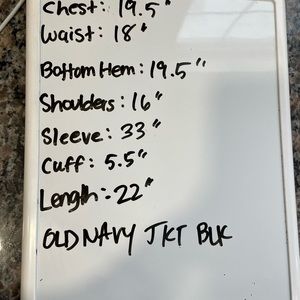 Chest: 19.5"
Waist: 18"
Bottom Hem: 19.5"
Shoulders: 16"
Sleeve: 33"
Cuff: 5.5"
Length: 22"
OLD NAVY JKT BLK